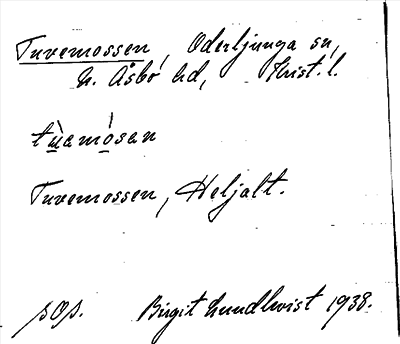 Tuvemossen, Oderljunga sn,
N. Åsbo hd, Krist. l.
tùamòsan
Tuvemossen, Heljalt.
sOs. Birgit Lundkvist 1938.